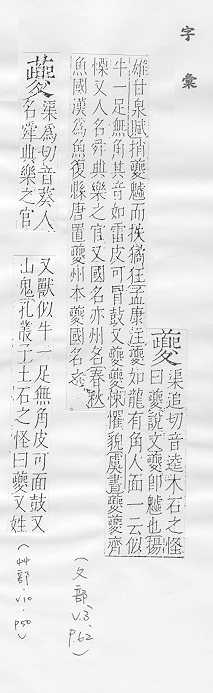 字彙
夔
渠追切音逵木石之怪
曰夔說文夔即魖也揚
雄甘泉賦捎夔魖而抶獝狂孟康注夔如龍有角人面一云似
牛一足無角其音如雷皮可冒鼓又夔夔悚懼貌虞書夔夔齊
慄又人名舜典樂之官又國名亦州名春秋
魚國漢為魚復縣唐置夔州本夔國名也
(夂部, V.3, P.62)
蘷
渠為切音葵人
名舜典樂之官
又獸似牛一足無角皮可面鼓又
山鬼孔叢子土石之怪曰夔又姓
(艸部, V.10, P50)